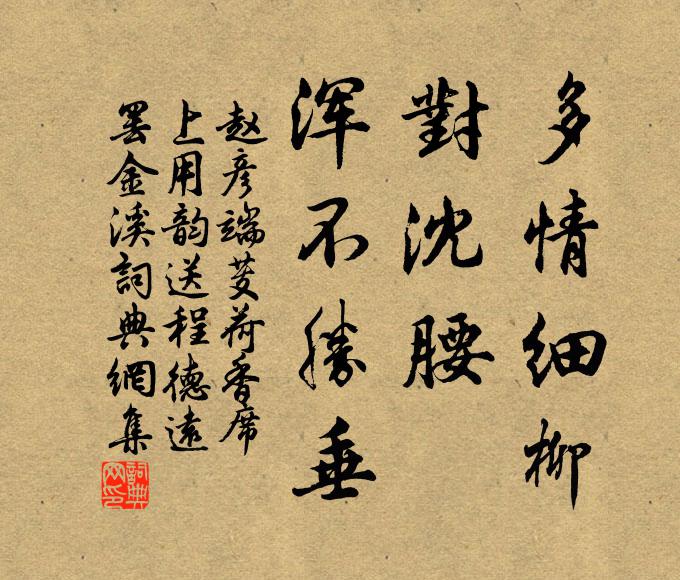 多情细柳
對沈腰
浑不勝垂
赵彦端芰荷香席
上用韵送程德遠
罢金溪詞典網集
詞典网印